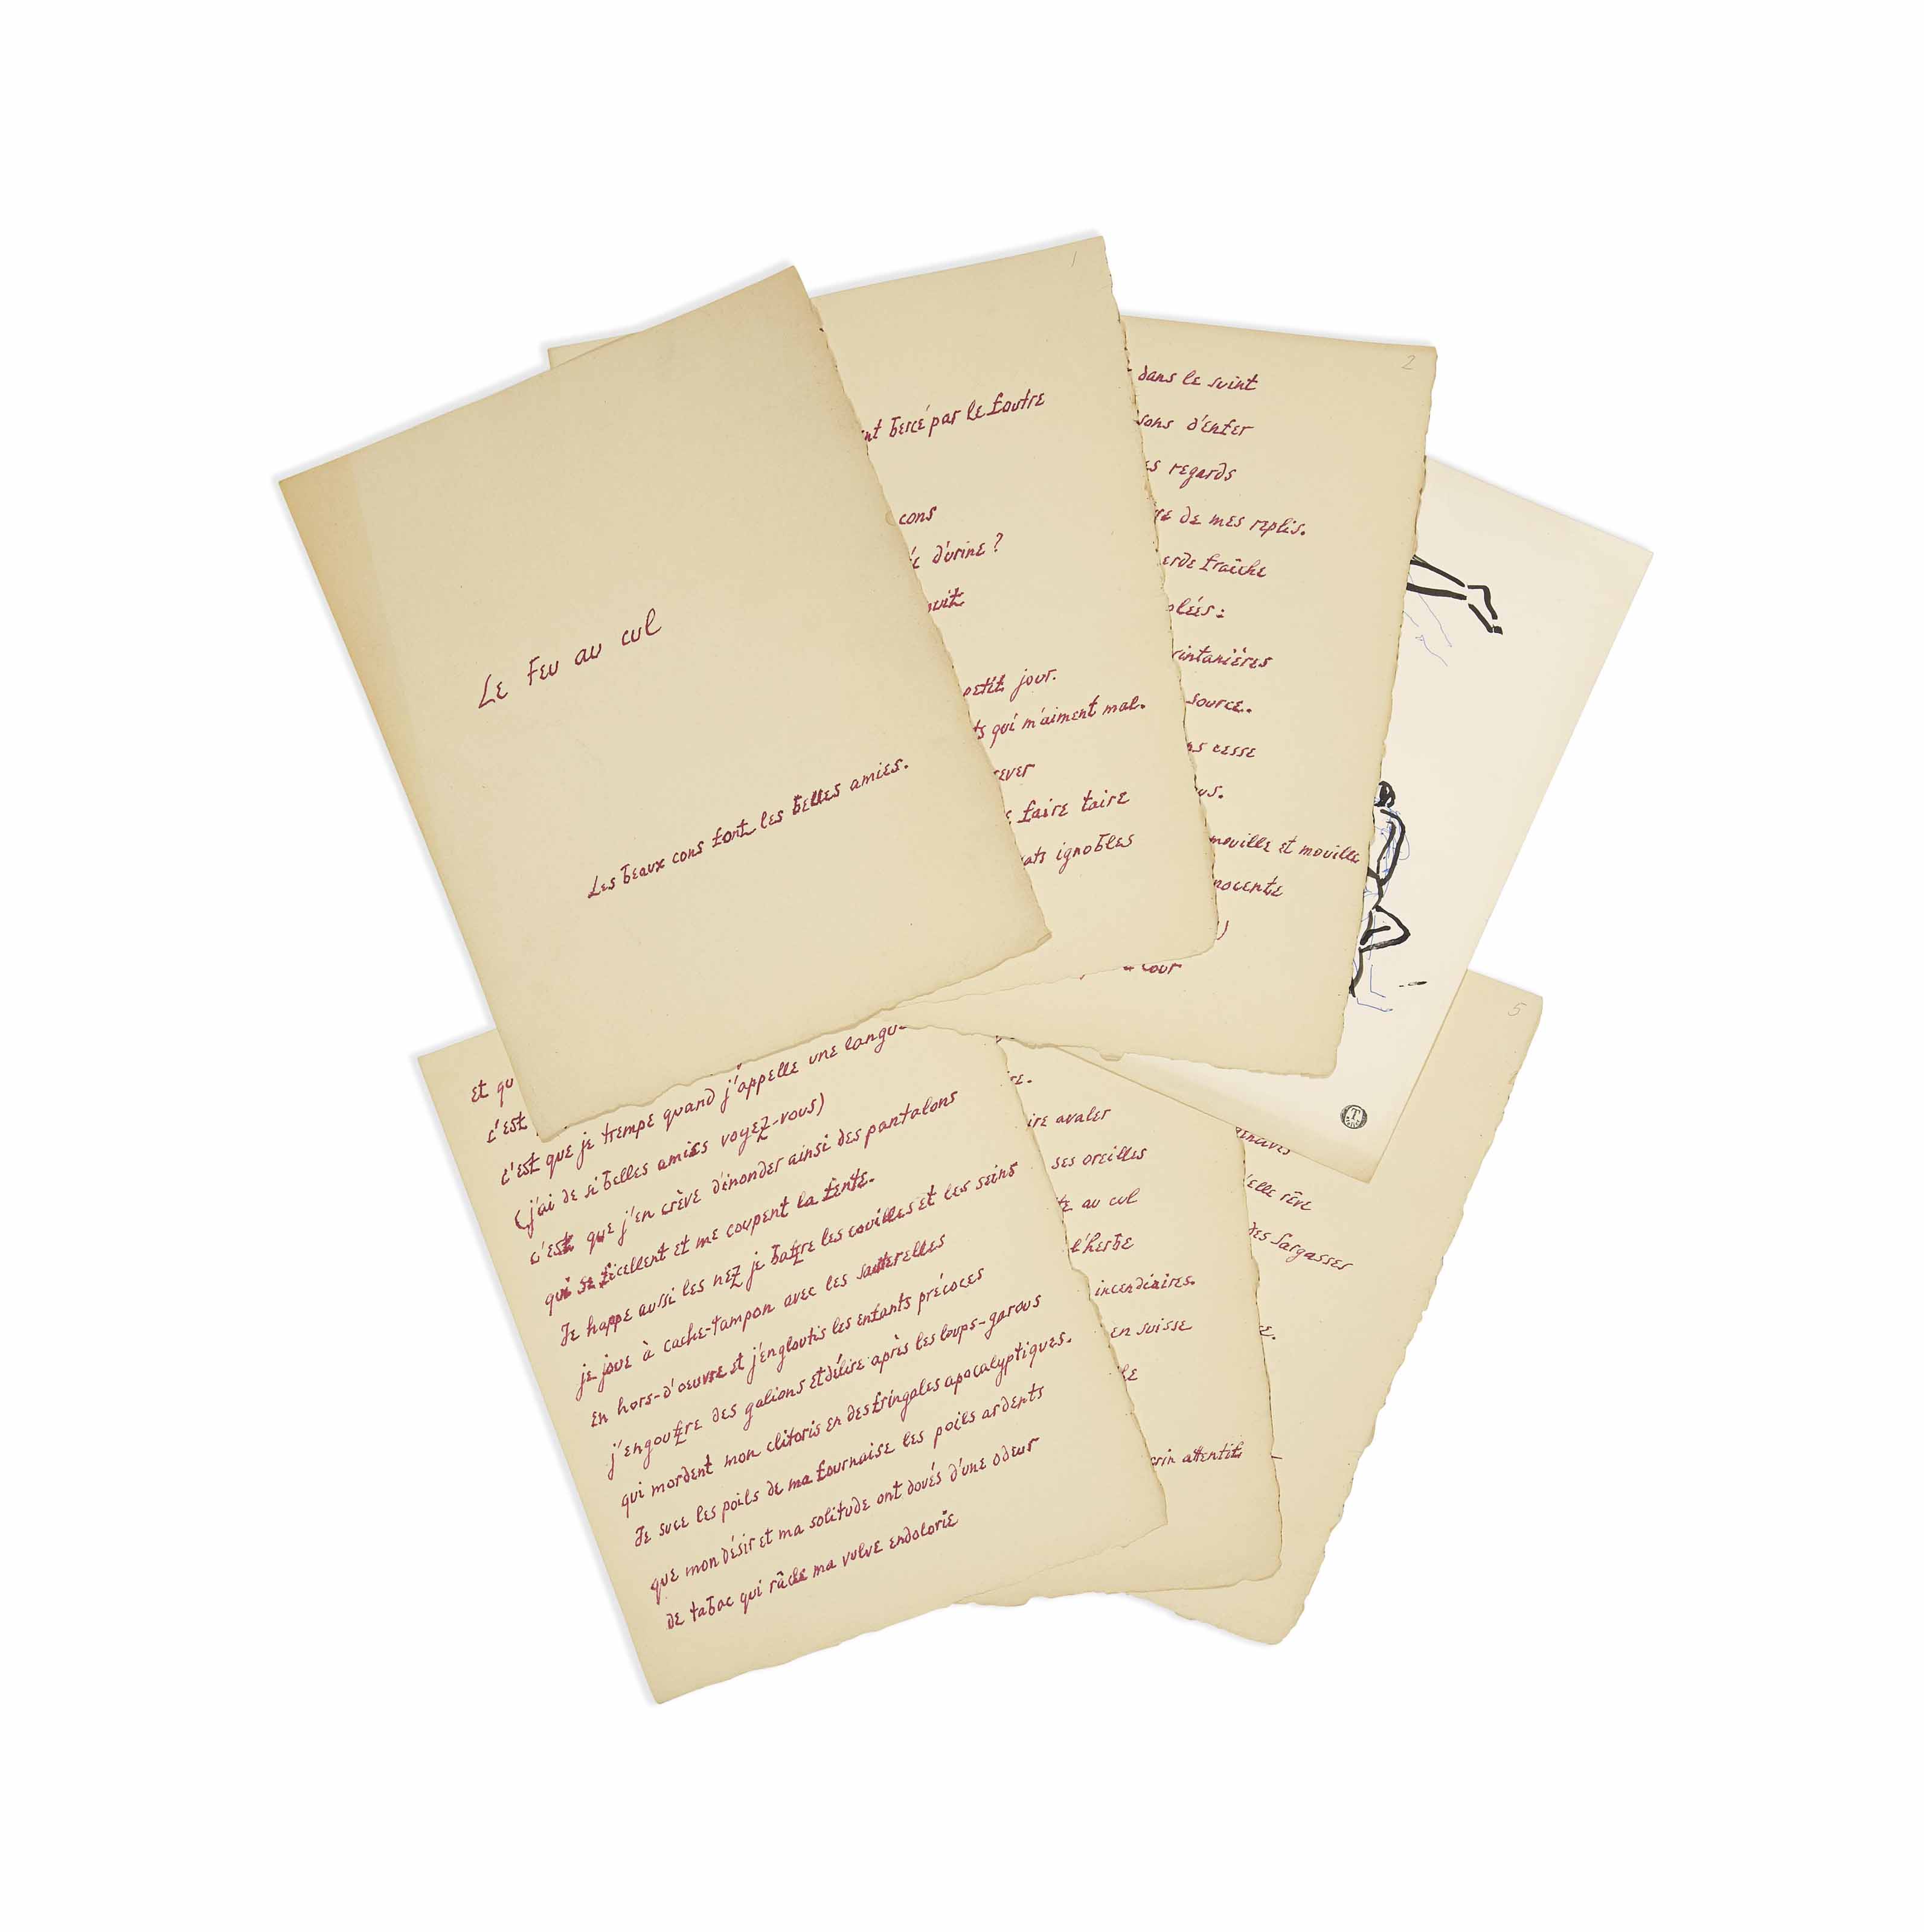 Le Feu au cul
Les beaux cons font les belles amies.
1
nt bercé par le foutre
cons
d'urine ?
petit jour.
ts qui m'aiment mal.
faire taire
ignobles
2
dans le suint
sons d'enfer
regards
de mes replis.
fraîche
source.
cesse
mouille et mouille
et qu
c'est
c'est que je trempe quand j'appelle une langu
(j'ai de si belles amies voyez-vous)
c'est que j'en crève d'inonder ainsi des pantalons
qui se ficellent et me coupent la fente.
Je happe aussi les nez je baffre les couilles et les seins
je joue à cache-tampon avec les sauterelles
en hors-d'oeuvre et j'engloutis les enfants précoces
j'engouffre des galions et délire après les loups-garous
qui mordent mon clitoris en des fringales apocalyptiques.
Je suce les poils de ma fournaise les poils ardents
que mon désir et ma solitude ont doués d'une odeur
de tabac qui râcle ma vulve endolorie
avaler
ses oreilles
au cul
l'herbe
incendiaires.
en suisse
attentif
5
elle rêve
des Sargasses